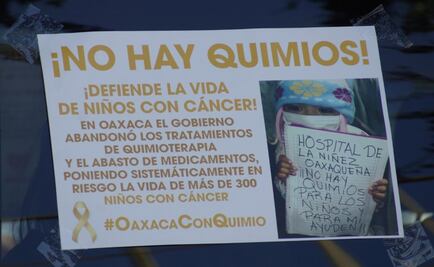 ¡NO HAY QUIMIOS!
¡DEFIENDE LA VIDA
DE NIÑOS CON CÁNCER!
EN OAXACA EL GOBIERNO
ABANDONÓ LOS TRATAMIENTOS
DE QUIMIOTERAPIA
Y EL ABASTO DE MEDICAMENTOS,
PONIENDO SISTEMÁTICAMENTE EN
RIESGO LA VIDA DE MÁS DE 300
NIÑOS CON CÁNCER
#OAXACACONQUIMIO
HOSPITAL DE
LA NIÑEZ
OAXAQUEÑA
¡NO HAY
QUIMIOS
PARA LOS
NIÑOS!
PARA MI
AYUDEN!!